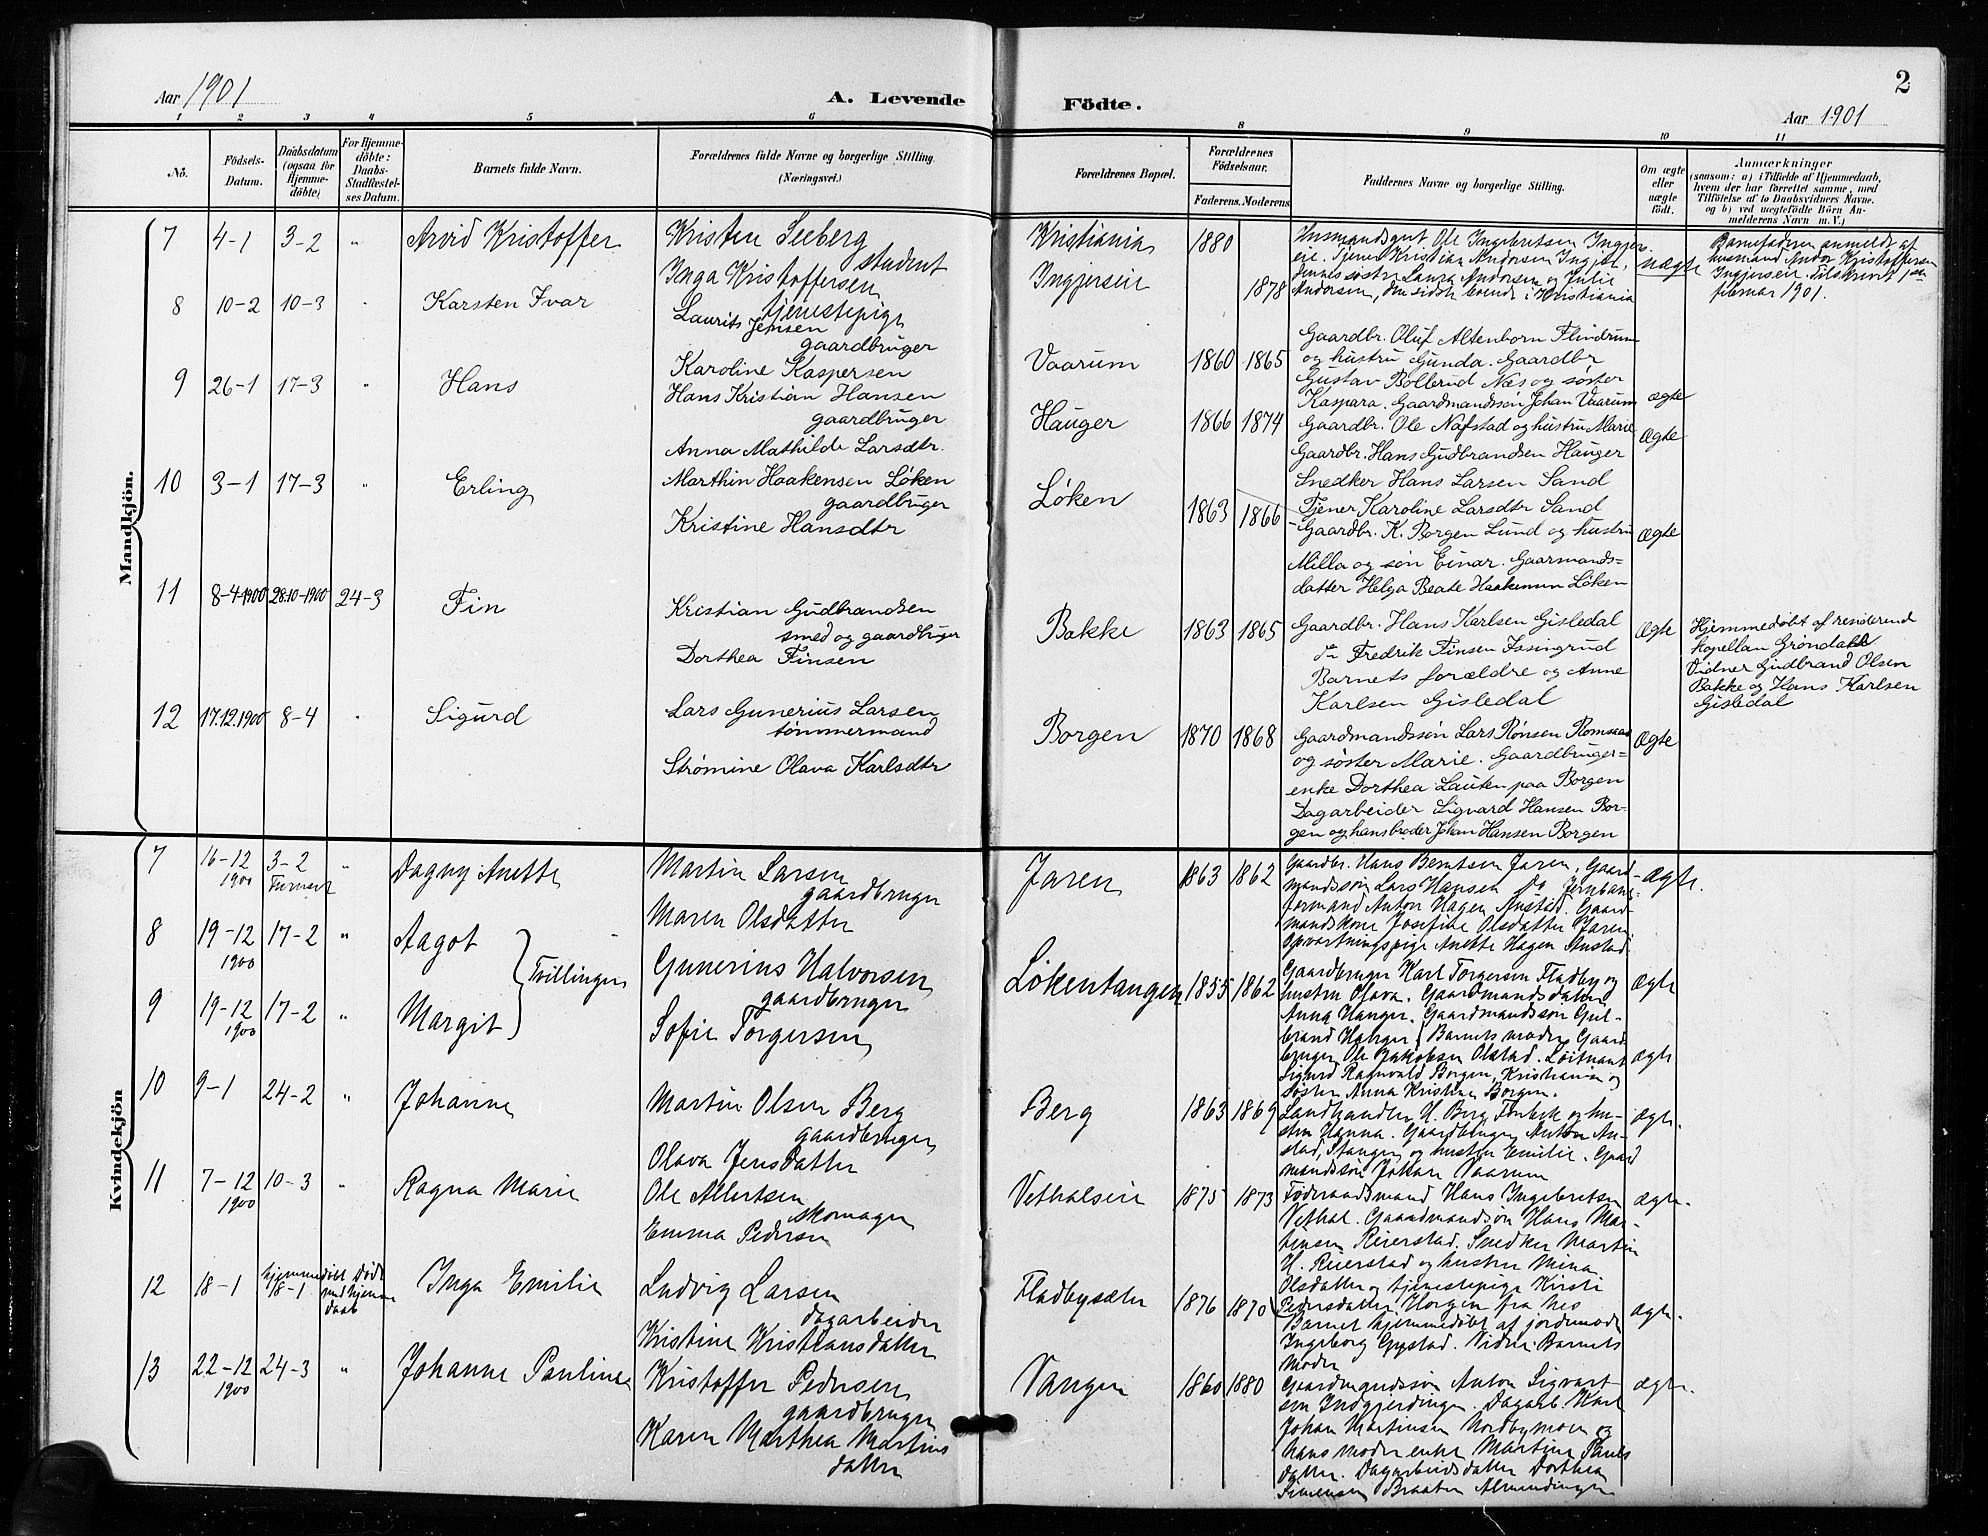 Aar 1901
A. Levende
Födte.
2
Aar 1901
1 2 3 4 5 6 8 9 10 11
No.
Födsels-
Datum.
Daabsdatum
(ogsaa for
Hjemme-
döbte)
For Hjemme-
döbte:
Daabs-
Stadfæstel-
ses Datum.
Barnets fulde Navn.
Forældrenes fulde Navne og borgerlige Stilling.
(Næringsvei.)
Forældrenes Bopæl.
Forældrenes
Födselsaar.
Faderens. Moderens
Faddernes Navne og borgerlige Stilling.
Om ægte
eller
uægte
födt.
Anmærkninger
(saasom: a) i Tilfælde af Hjemmedaab,
hvem der har forrettet samme, med
Tilföielse af to Daabsvidners Navne.
og b) ved uægtefödte Börn An-
melderens Navn m. V.)
Mandkjön.
7 4-1 3-2 " Arvid Kristoffer
Kristen Seeberg
student
Inga Kristoffersen
tjenestepige
Kristiania 1880
Ingjerseie 1878
Husmandsgut Ole Ingebretsen Ingjers-
eie. Tjener Kristian Andersen Ingjer,
hennes søstre Laura Andersen og Julie
Andersen, den sidste boende i Kristiania
uægte
Barnefaderen anmeldt af
husmand Andor Kristoffersen
Ingjerseie. Tilskrevet 1ste
februar 1901.
8 10-2 10-3 " Karsten Ivar
Laurits Jensen
gaardbruger
Karoline Kaspersen
Vaarum 1860 1865
Gaardbr. Oluf Altenborn Flindrum
og hustru Gunda. Gaardbr
Gustav Bollerud Næs og søster
Kaspara. Gaardmandssøn Johan Vaarum
ægte
9 26-1 17-3 " Hans
Hans Kristian Hansen
gaardbruger
Anna Mathilde Larsdtr.
Hauger 1866 1874
Gaardbr. Ole Nafstad og hustru Marie
Gaardbr. Hans Gudbrandsen Hauger
Snedker Hans Larsen Sand
Tjener Karoline Larsdtr Sand
Ægte
10 3-1 17-3 " Erling
Marthin Haakensen Løken
gaardbruger
Kristine Hansdtr
Løken 1863 1866
Gaardbr. K. Borgen Lund og hustru
Milla og søn Einar. Gaarmands=
datter Helga Beate Haakensen Løken
Ægte
11 8-4 1900 28.10-1900 24-3 Fin
Kristian Gudbrandsen
smed og gaardbruger
Dorthea Finsen
Bakke 1863 1865
Gaardbr. Hans Karlsen Gisledal
do Fredrik Finsen Fosingrud
Barnets forældre og Anne
Karlsen Gisledal
Ægte
Hjemmedøbt af residerend
kapellan Grøndahl
Vidner Gudbrand Olsen
Bakke og Hans Karlsen
Gisledal
12 17.12.1900 8-4 " Sigurd
Lars Gunerius Larsen
tømmermand
Strømine Olava Karlsdtr
Borgen 1870 1868
Gaardmandssøn Lars Rønsen Romsaas
og søster Marie. Gaardbruger=
enke Dorthea Lauten paa Borgen
Dagarbeider Sigvard Hansen Bor-
gen og hans broder Johan Hansen Borgen
Ægte
Kvindekjön
7 16-12 1900 3-2 " Dagny Anette
Martin Larsen
gaardbruger
Maren Olsdatter
Jaren 1863 1862
Gaardbr. Hans Berntsen Jaren. Gaard-
mandssøn Lars Hansen do Jernbane-
formand Anton Hagen Austad. Gaard-
mandskone Josefine Olsdatter Jaren
Opvartningspige Anette Hagen Austad
ægte.
8 19-12 1900 17-2 " Aagot
9 19-12 1900 17-2 " Margit
Tvillinger
Gunerius Halvorsen
gaardbruger
Sofie Torgersen
Løkentangen 1855 1862
Gaardbruger Karl Torgersen Fladby og
hustru Olava. Gaardmandsdatter
Anna Hauger. Gaardmandssøn Gul-
brand Hauger. Barnets moder, Gaard-
bruger Ole Jakobsen Olstad. Løitnant
Sigurd Ragnvald Borgen, Kristiania og
søster Anna Kristine Borgen.
ægte
ægte
10 9-1 24-2 " Johanne
Martin Olsen Berg
gaardbruger
Olava Jensdatter
Berg 1863 1869
Landhandler H. Berg Fonbek og hu-
stru Hanna. Gaardbruger Anton Au-
stad, Stangen og hustru Emilie. Gaard
mandssøn Johan Vaarum
ægte.
11 7-12 1900 10-3 " Ragna Marie
Ole Albertsen
skomager
Emma Pedersen
Vethalseie 1875 1873
Føderaadsmand Hans Ingebretsen
Vethal. Gaardmandsøn Hans Mar-
tinsen Reierstad. Snedker Martin
H. Reierstad og hustru Mina
Olsdatter og tjenestepige Kirsti
Pedersdatter Horgen fra Nes
ægte.
12 18-1 hjemmedøbt 18-1 Død med hjemme daab Inga Emilie
Ludvig Larsen
dagarbeider
Kristine Kristiansdatter
Fladbysæter 1876 1870
Barnet hjemmedøbt af jordemoder
Ingeborg Gystad. Vidne: Barnets
Moder
ægte.
13 22-12 1900 24-3 " Johanne Pauline
Kristoffer Pedersen
gaardbruger
Karen Marthea Martins
datter
Vangen 1860 1880
Gaardmandssøn Anton Sigvart-
sen Indgjerdingen. Dagarb. Karl
Johan Martinsen Nordbymoen og
hans moder enke Martine Pauls
datter. Dagarbeidsdatter Dorthea
Simensen Braaten Almindingen
ægte.